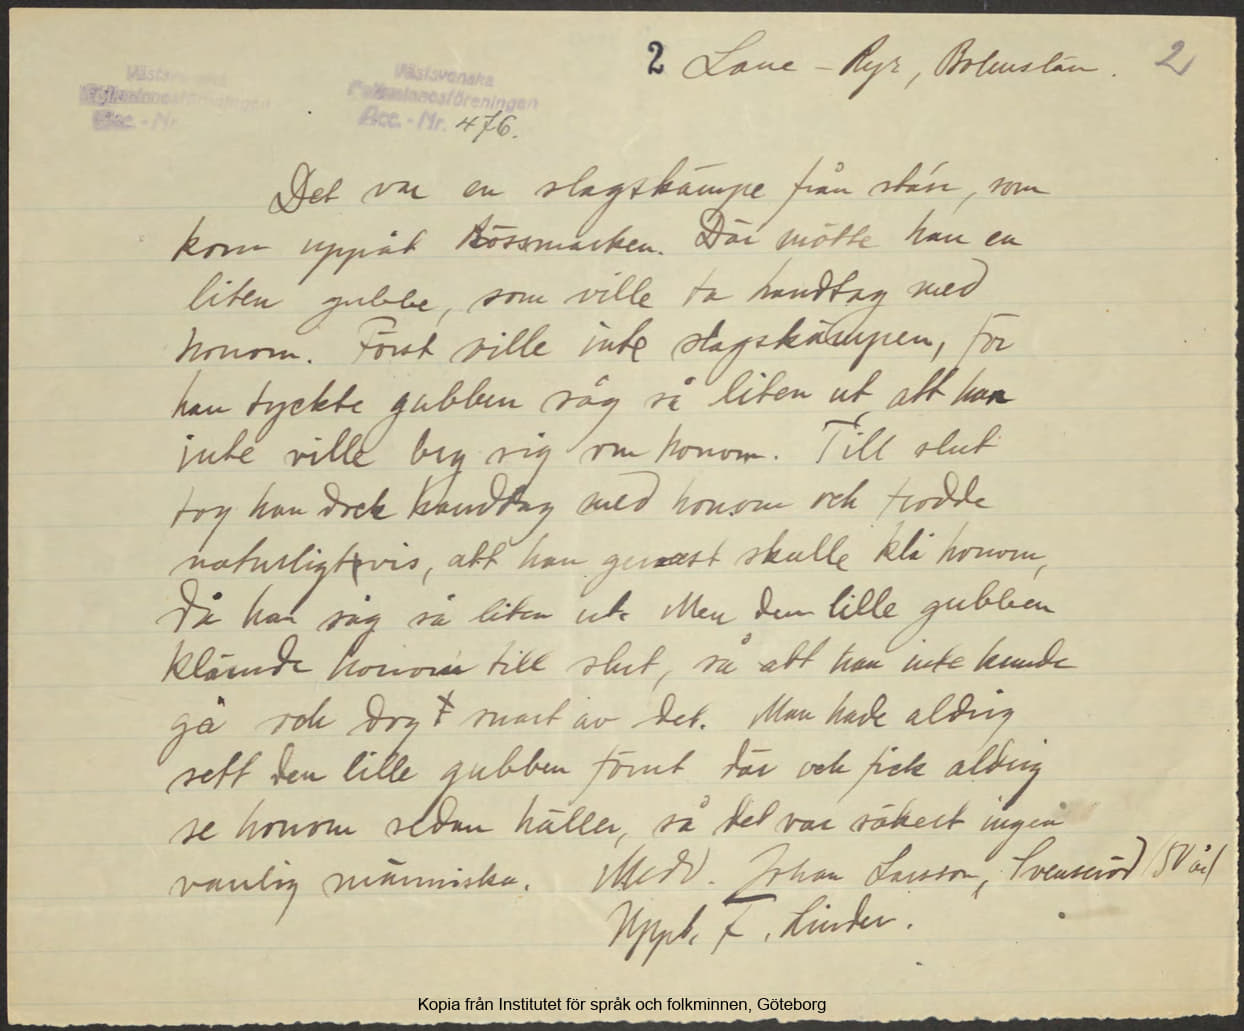 2 Lane-Ryr, Bohuslän. 2
Västsvenska
Folkminnesföreningen
Acc. - Nr.
Västsvenska
Folkminnesföreningen
Acc. - Nr. 476.
Det var en slagskämpe från stán, som
kom uppåt Bössmarken. Där mötte han en
liten gubbe, som ville ta handtag med
honom. Först ville inte slagskämpen, för
han tyckte gubben såg så liten ut, att han
inte ville bry sig om honom. Till slut
tog han dock handtag med honom och trodde
naturligtvis, att han genast skulle klå honom,
då han såg så liten ut. Men den lille gubben
klämde honom till slut, så att han inte kunde
gå och dog snart av det. Man hade aldrig
sett den lille gubben förut där och fick aldrig
se honom sedan häller, så det var säkert ingen
vanlig människa. Medd. Johan Larsson, Svenseröd
Uppt. F. Linder.
Kopia från Institutet för språk och folkminnen, Göteborg